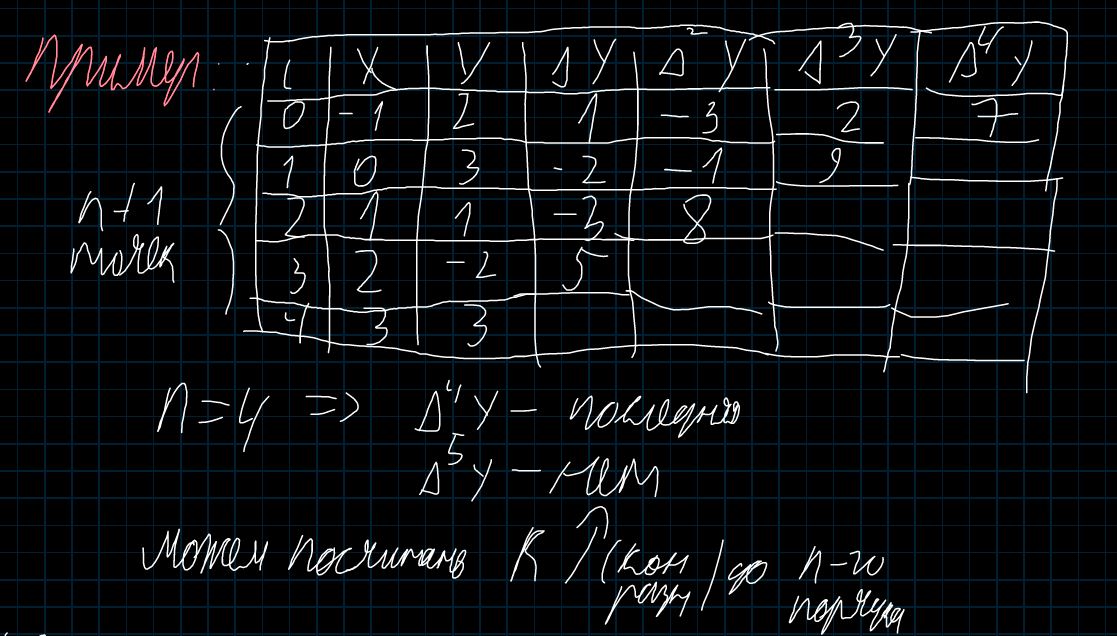 Пример:
i X Y ΔY Δ²Y Δ³Y Δ⁴Y
0 -1 2 1 -3 2 7
1 0 3 -2 -1 9
2 1 1 -3 8
3 2 -2 5
4 3 3
n+1
точек
n=4 => Δ⁴Y - последняя
Δ⁵Y - нет
Можем посчитать КР (кон разн) до n-го
порядка